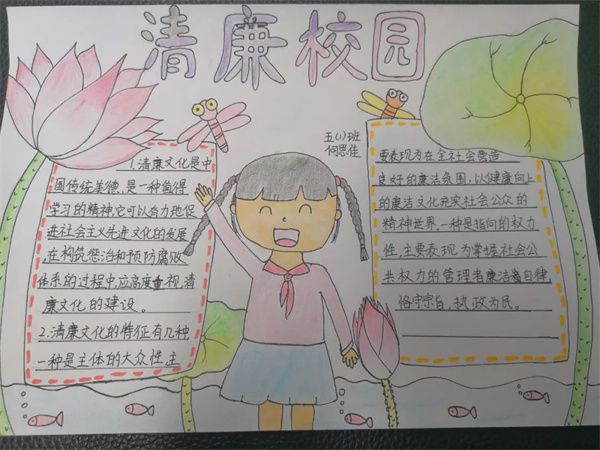 清廉校园
五(1)班
何思佳
1.清廉文化是中
国传统美德,是一种值得
学习的精神,它可以自力地促
进社会主义先进文化的发展
,在构筑惩治和预防腐败
体系的过程中,应高度重视,清
廉文化的建设。
2.清廉文化的特征有几种
一种是主体的大众性主
要表现为在全社会营造
良好的廉洁氛围,以健康向上
的廉洁文化充实社会公众的
精神世界,一种是指向的权力
性,主要表现为掌握社会公
共权力的管理者廉洁自律
恪守宗旨,执政为民。